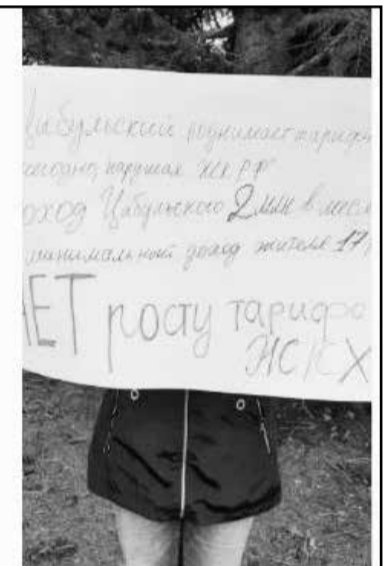 Цабульский поднимает тарифы
ежегодно, нарушая ЖК РФ
оход Цабульского 2 млн в меся
минимальный доход жителя 17
НЕТ росту тарифо
ЖКХ